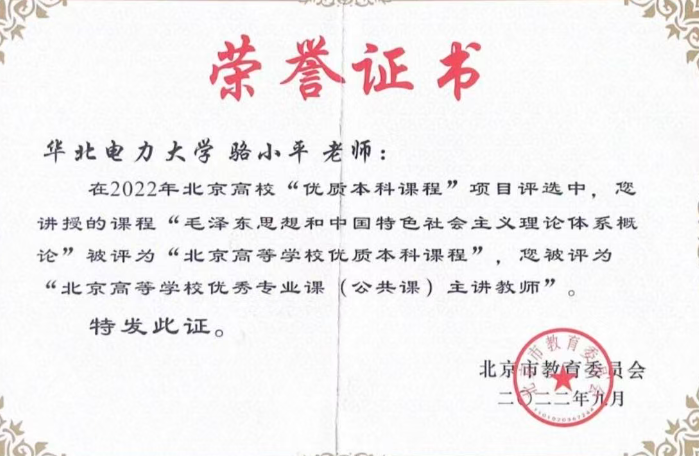 荣誉证书
华北电力大学 骆小平 老师：
在2022年北京高校“优质本科课程”项目评选中，您
讲授的课程“毛泽东思想和中国特色社会主义理论体系概
论”被评为“北京高等学校优质本科课程”，您被评为
“北京高等学校优秀专业课（公共课）主讲教师”。
特发此证。
北京市教育委员会
二〇二二年九月
北京市教育委员会